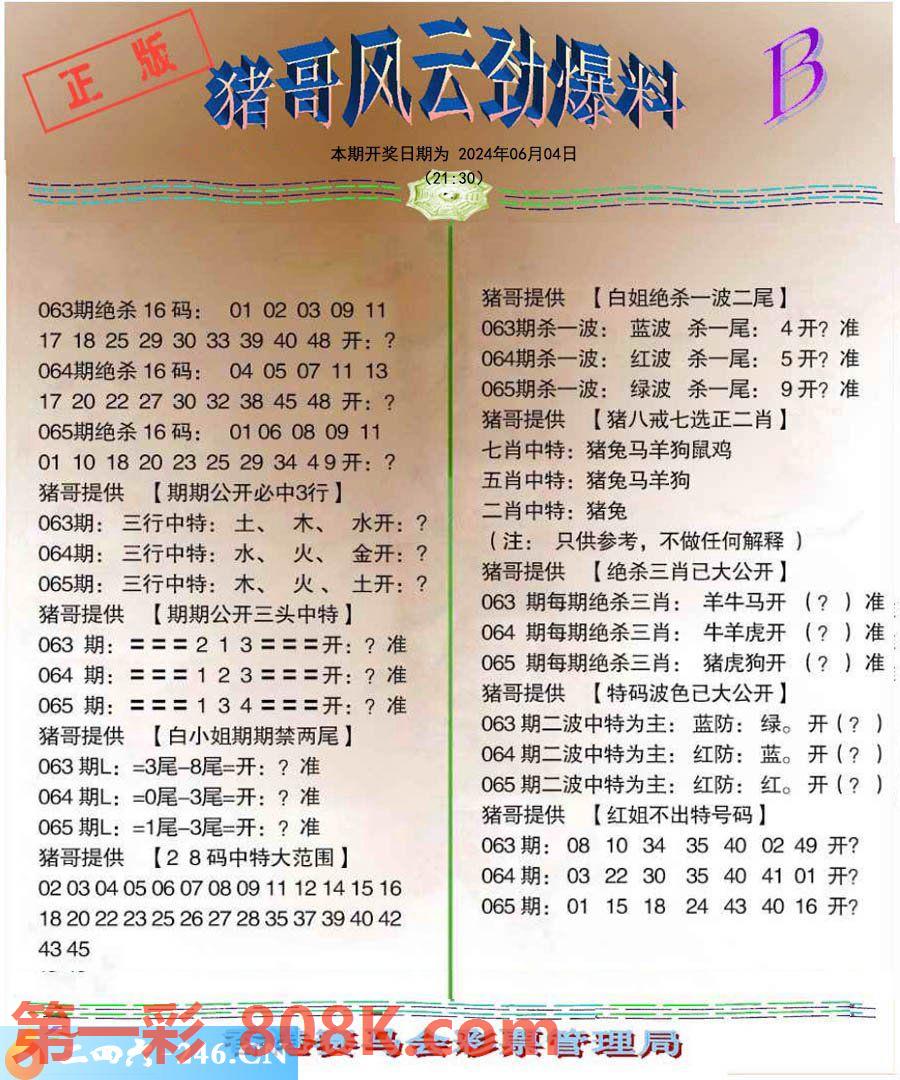 正版
猪哥风云劲爆料
B
本期开奖日期为 2024年06月04日
(21:30)
063期绝杀16码： 01 02 03 09 11
17 18 25 29 30 33 39 40 48 开：?
064期绝杀16码： 04 05 07 11 13
17 20 22 27 30 32 38 45 48 开：?
065期绝杀16码： 01 06 08 09 11
01 10 18 20 23 25 29 34 4 9 开：?
猪哥提供 【期期公开必中3行】
063期： 三行中特：土、 木、 水开：?
064期： 三行中特：水、 火、 金开：?
065期： 三行中特：木、 火、 土开：?
猪哥提供 【期期公开三头中特】
063 期：＝＝＝2 1 3＝＝＝开：? 准
064 期：＝＝＝1 2 3＝＝＝开：? 准
065 期：＝＝＝1 3 4＝＝＝开：? 准
猪哥提供 【白小姐期期禁两尾】
063 期L：=3尾–8尾=开：? 准
064 期L：=0尾–3尾=开：? 准
065 期L：=1尾–3尾=开：? 准
猪哥提供 【2 8码中特大范围】
02 03 04 05 06 07 08 09 11 12 14 15 16
18 20 22 23 25 26 27 28 35 37 39 40 42
43 45
猪哥提供 【白姐绝杀一波二尾】
063期杀一波： 蓝波 杀一尾： 4 开? 准
064期杀一波： 红波 杀一尾： 5 开? 准
065期杀一波： 绿波 杀一尾： 9 开? 准
猪哥提供 【猪八戒七选正二肖】
七肖中特：猪兔马羊狗鼠鸡
五肖中特：猪兔马羊狗
二肖中特：猪兔
（注： 只供参考，不做任何解释 ）
猪哥提供 【绝杀三肖已大公开】
063 期每期绝杀三肖： 羊牛马开 （? ）准
064 期每期绝杀三肖： 牛羊虎开 （? ）准
065 期每期绝杀三肖： 猪虎狗开 （? ）准
猪哥提供 【特码波色已大公开】
063 期二波中特为主： 蓝防：绿。开（? ）
064 期二波中特为主： 红防：蓝。开（? ）
065 期二波中特为主： 红防：红。开（? ）
猪哥提供 【红姐不出特号码】
063 期： 08 10 34 35 40 02 49 开?
064 期： 03 22 30 35 40 41 01 开?
065 期： 01 15 18 24 43 40 16 开?
第一彩 808K.com
二四六-246.CN
马会彩票管理局